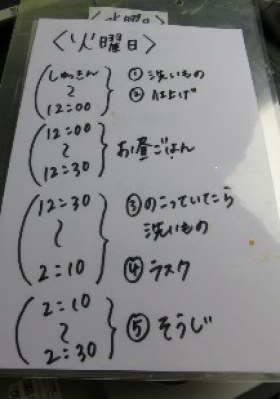 〈火曜日〉
しゅっきん
〜
12:00
①洗いもの
②仕上げ
12:00
〜
12:30
お昼ごはん
12:30
〜
2:10
③のこっていたら
洗いもの
④ラスク
2:10
〜
2:30
⑤そうじ